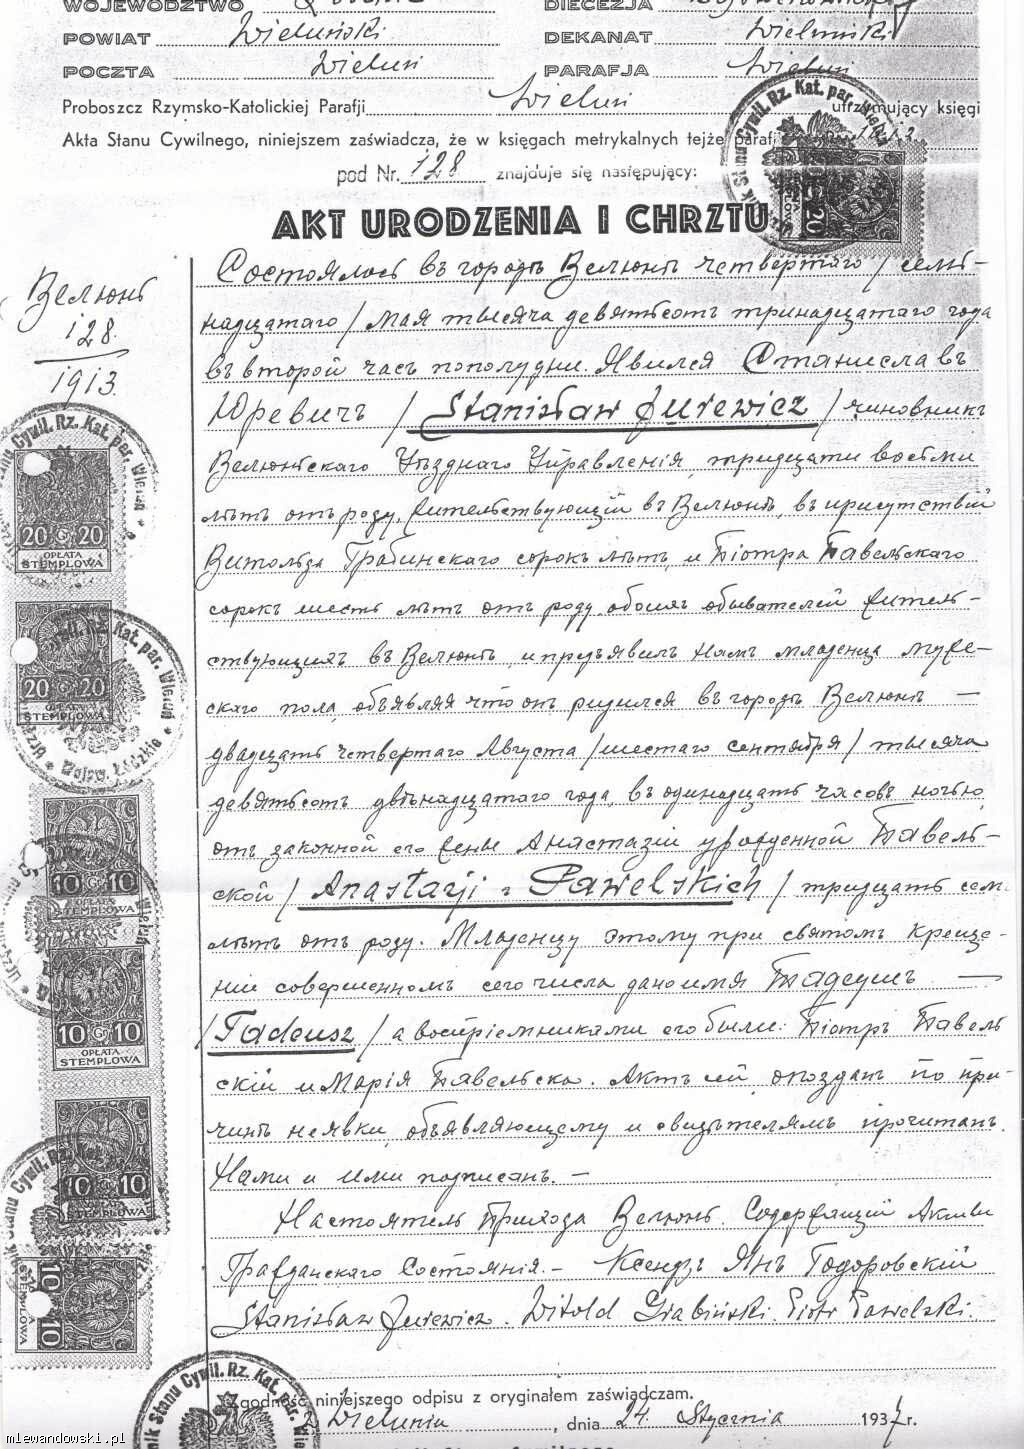 WOJEWÓDZTWO
DIECEZJA
POWIAT Wieluński DEKANAT Wieluński
POCZTA Wieluń PARAFJA Wieluń
Proboszcz Rzymsko-Katolickiej Parafji Wieluń utrzymujący księgi
Akta Stanu Cywilnego, niniejszem zaświadcza, że w księgach metrykalnych tejże parafji
pod Nr. 128 znajduje się następujący:
AKT URODZENIA I CHRZTU
Велюнь
128.
1913.
Состоялось въ городѣ Велюнѣ четвертаго / семь-
надцатаго / мая тысяча девятьсотъ тринадцатаго года
въ второй часъ пополудни. Явился Станиславъ
Юревичъ / Stanisław Jurewicz / чиновникъ
Велюнскаго Уѣзднаго Управленія, тридцати восьми
лѣтъ отъ роду, жительствующій въ Велюнѣ, въ присутствіи
Витольда Грабинскаго сорокъ лѣтъ, и Піотра Павельскаго
сорокъ шесть лѣтъ отъ роду, обоихъ обывателей жител-
ствующихъ въ Велюнѣ, и предъявилъ намъ младенца муже-
скаго пола, объявляя что онъ родился въ городѣ Велюнѣ —
двадцать четвертаго Августа / шестаго сентября / тысяча
девятьсотъ двѣнадцатаго года, въ одинадцать часовъ ночью,
отъ законной его жены Анастазіи урожденной Павель-
ской / Anastazji z Pawelskich / тридцать сем.
лѣтъ отъ роду. Младенцу этому при святомъ креще-
ніи совершенномъ сего числа дано имя Тадеушъ —
/ Tadeusz / а воспріемниками его были: Піотръ Павель-
скій и Марія Павельска. Актъ сей, опозданъ по при-
чинѣ неявки, объявляющему и свидѣтелямъ прочитанъ,
Нами и ими подписанъ. —
Настоятель Прихода Велюнь. Содержащій Акты
Гражданскаго Состоянія. — Ксендзъ Янъ Годоровскій
Stanisław Jurewicz. Witold Grabiński. Piotr Pawelski.
Zgodność niniejszego odpisu z oryginałem zaświadczam.
z Wielunia, dnia 24 Stycznia 1937 r.
20 G 20
OPŁATA
STEMPLOWA
20 G 20
OPŁATA
STEMPLOWA
10 G 10
OPŁATA
STEMPLOWA
10 G 10
OPŁATA
STEMPLOWA
10 10
STEMPLOWA
10 10
mlewandowski.pl